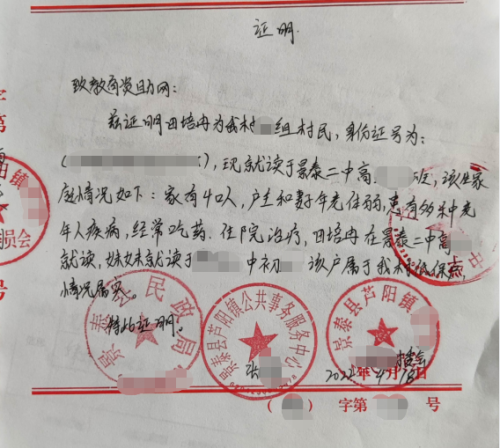 证明
致教育资助网：
兹证明田培冉为我村 组村民，身份证号为：
( )，现就读于景泰二中高 班，该生家
庭情况如下：家有4口人，户主和妻子年老体弱，患有多种老
年人疾病，经常吃药、住院治疗，田培冉在景泰二中高
就读，妹妹就读于 中初 该户属于我村低保户
情况属实。
特此证明。
景泰县民政局
景泰县芦阳镇公共事务服务中心
景泰县芦阳镇
2022年4月18日
( ) 字第 号
字第
号
阳镇
员会
中